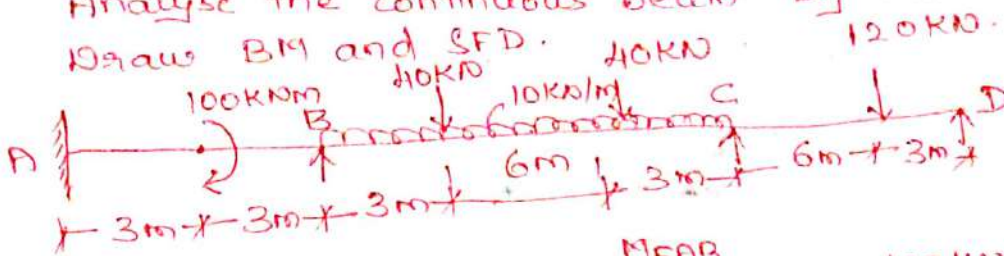 Analyse the continuous
Draw BM and SFD.
100KNm 40KN 10KN/m 40KN 120KN.
A B C D
3m 3m 3m 6m 3m 6m 3m
MFAB